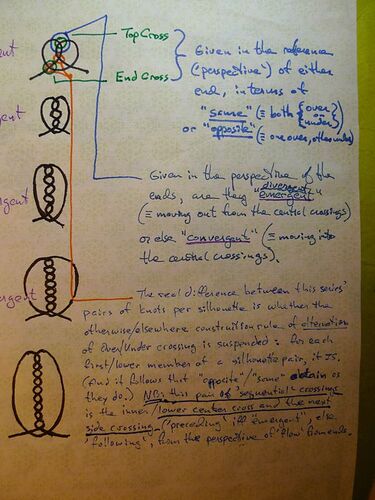 TopCross
EndCross
Given in the reference
('perspective') of either
end, in terms of
"same" (≡ both {over or under}
or "opposite" (≡ one over, other under)
Given in the perspective of the
ends, are they "divergent"
emergent"
(≡ moving out from the central crossings)
or else "convergent" (≡ moving into
the central crossings).
ergent
gent
rgent
ergent
The real difference between this series'
pairs of knots per silhouette is whether the
otherwise/elsewhere construction rule of alternation
of Over/Under crossing is suspended: for each
first/lower member of a silhouette pair, it IS.
(And it follows that "opposite"/"same" obtain as
they do.) NB: this pair of 'sequential' crossings
is the inner/lower center cross and the next
side crossing—('preceding' iff "emergent", else
'following', from the perspective of 'flow' from ends